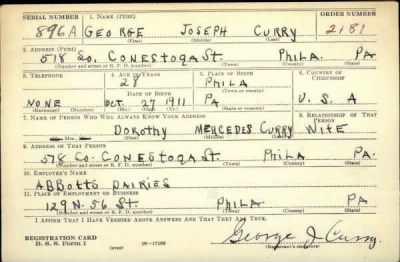 SERIAL NUMBER 1. NAME (Print) ORDER NUMBER
896A GEORGE JOSEPH CURRY 2181
(First) (Middle) (Last)
2. ADDRESS (Print)
578 So. CONESTOGA St. PHILA. PA
(Number and street or R. F. D. number) (Town) (County) (State)
3. TELEPHONE 4. AGE IN YEARS 5. PLACE OF BIRTH 6. COUNTRY OF CITIZENSHIP
29 PHILA
DATE OF BIRTH (Town or county)
NONE OCT. 27 1911 PA U. S. A
(Exchange) (Number) (Mo.) (Day) (Yr.) (State or country)
7. NAME OF PERSON WHO WILL ALWAYS KNOW YOUR ADDRESS 8. RELATIONSHIP OF THAT PERSON
DOROTHY MERCEDES CURRY WIFE
(First) (Middle) (Last)
9. ADDRESS OF THAT PERSON
578 So. CONESTOGA St. PHILA PA.
(Number and street or R. F. D. number) (Town) (County) (State)
10. EMPLOYER'S NAME
ABBOTTS DAIRIES
11. PLACE OF EMPLOYMENT OR BUSINESS
129 N. 56 St. PHILA PA.
(Number and street or R. F. D. number) (Town) (County) (State)
I AFFIRM THAT I HAVE VERIFIED ABOVE ANSWERS AND THAT THEY ARE TRUE.
REGISTRATION CARD
D. S. S. Form 1 (over) George J. Curry